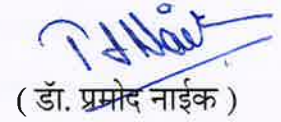 ( डॉ. प्रमोद नाईक )